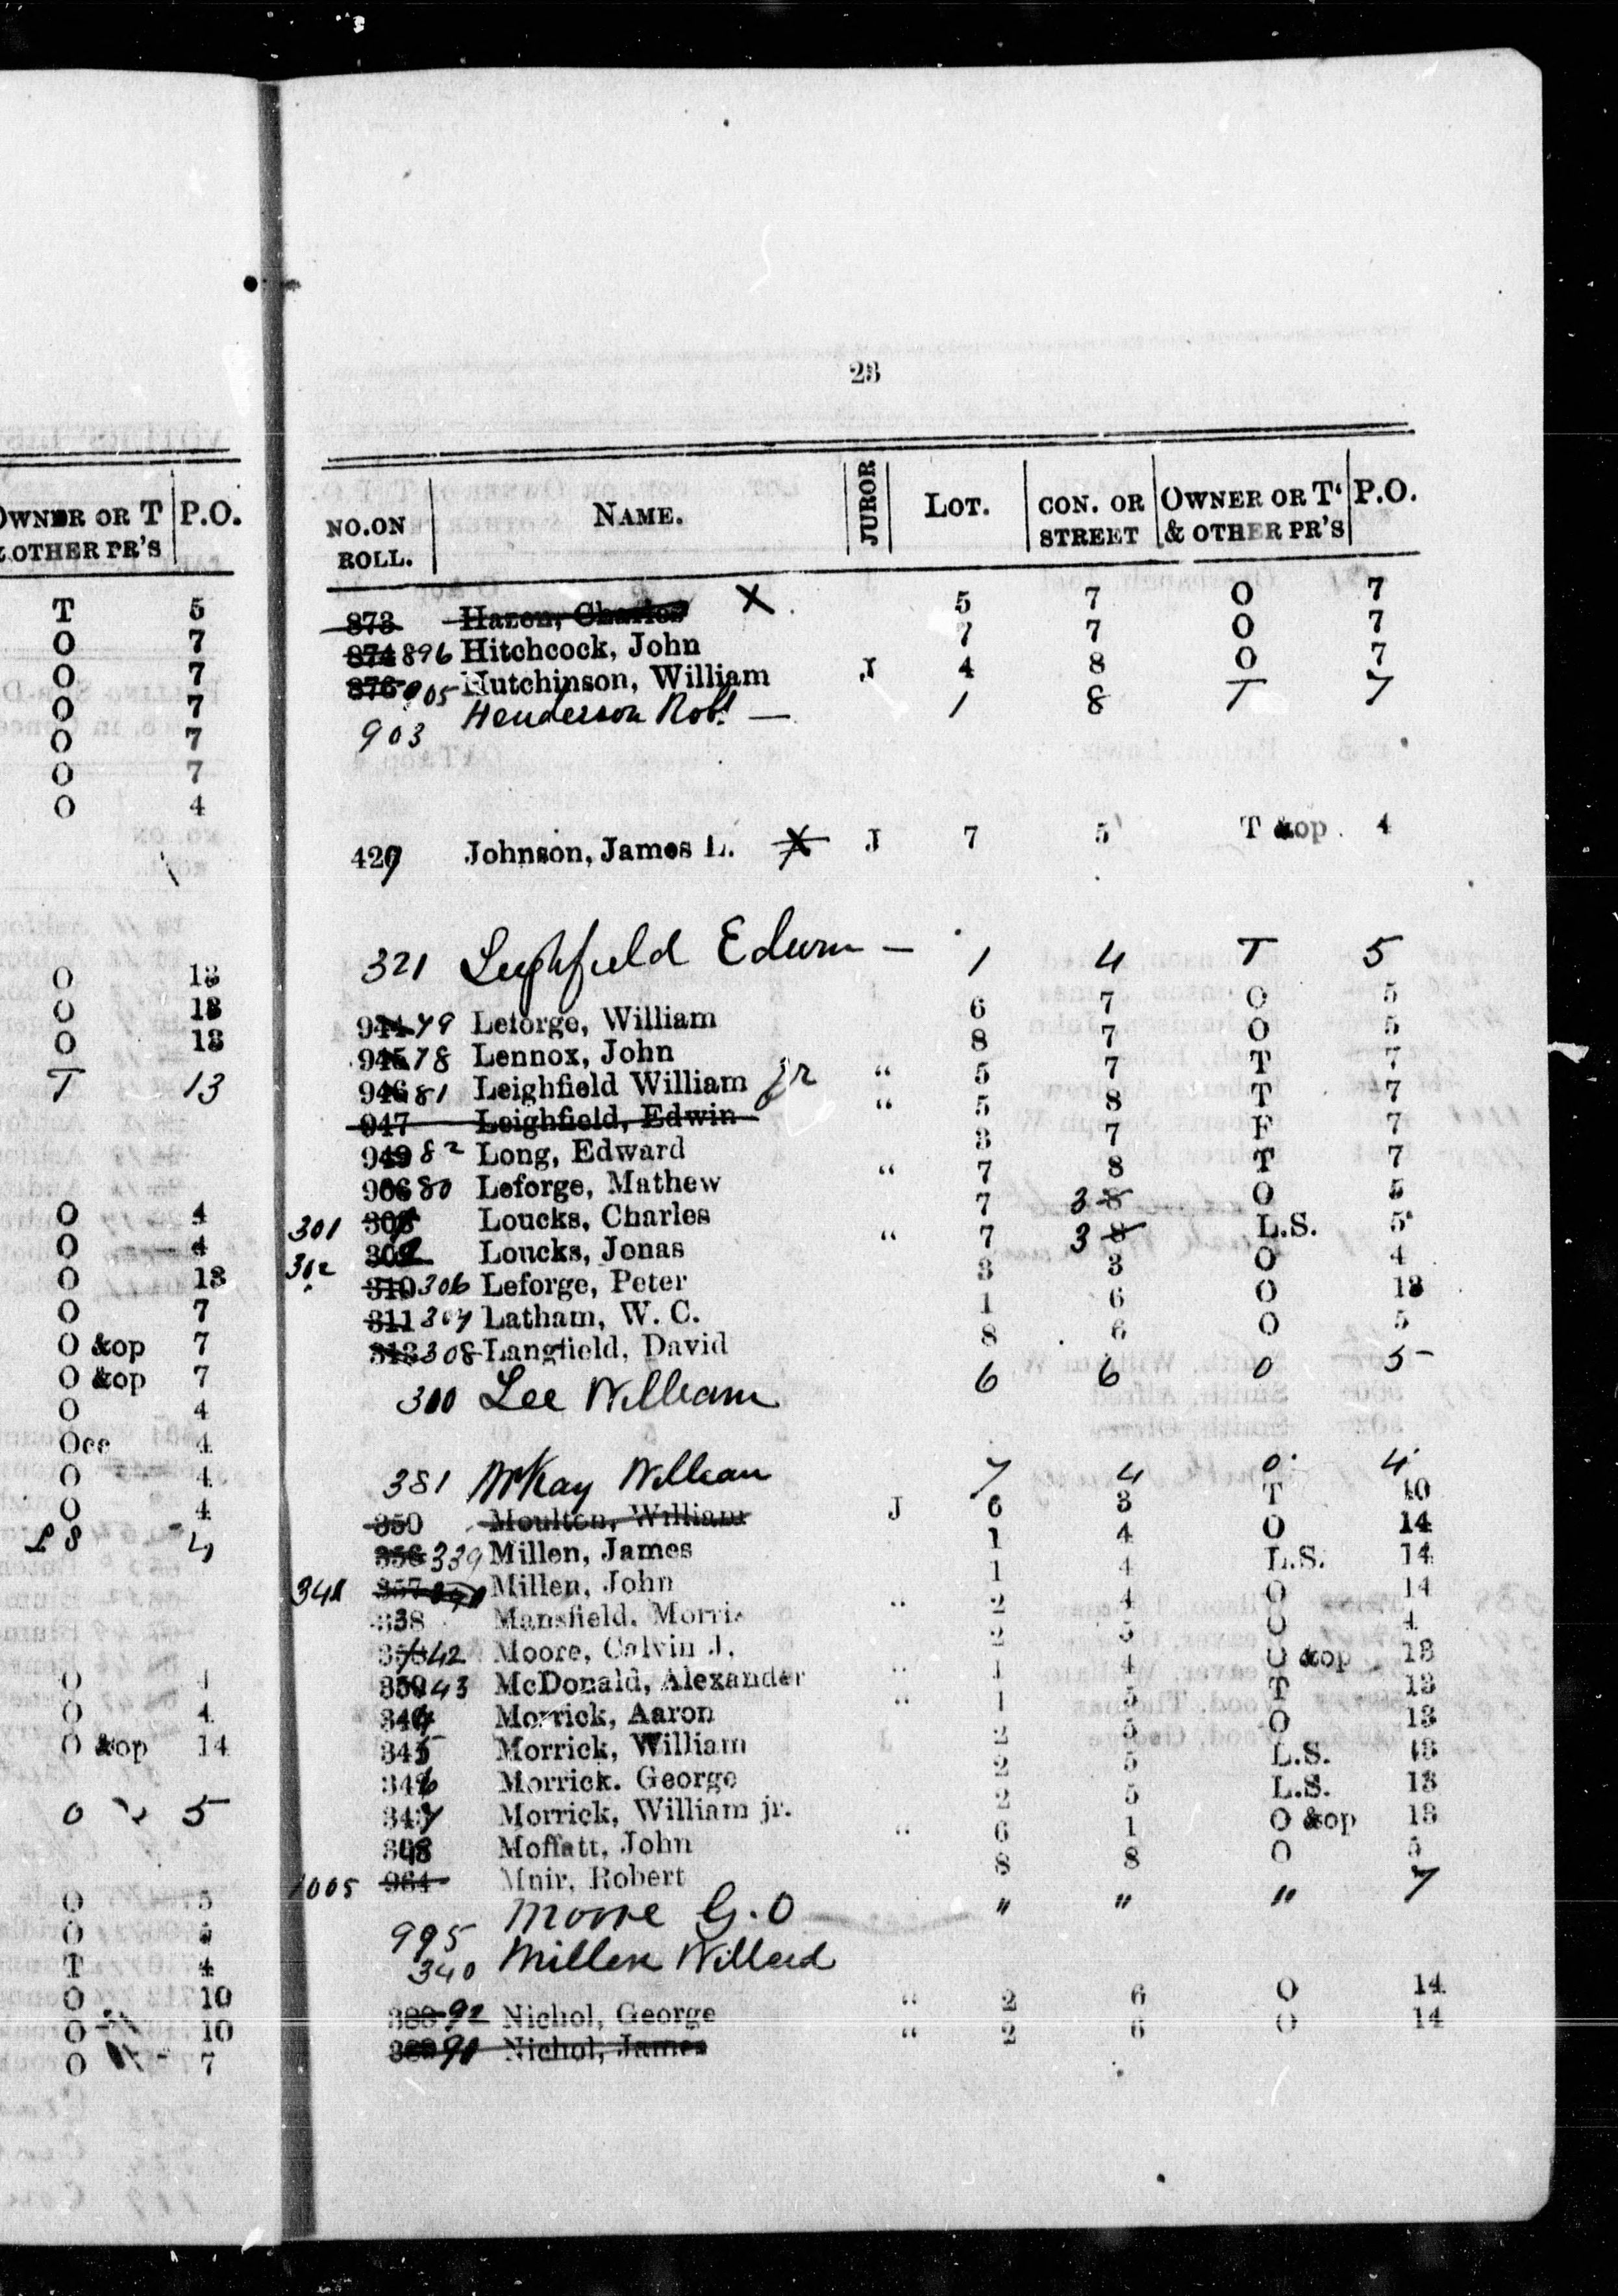 23
OWNER OR T P.O.
& OTHER PR'S
T 5
O 7
O 7
O 7
O 7
O 7
O 4
O 13
O 13
O 13
T 13
O 4
O 4
O 13
O 7
O &op 7
O &op 7
O 4
Occ 4
O 4
O 4
L S 4
O 4
O 4
O &op 14
O 5
O 5
O 5
T 4
O 10
O 10
O 7
NO. ON ROLL. NAME. JUROR LOT. CON. OR STREET OWNER OR T & OTHER PR'S P.O.
873 Hazen, Charles X 5 7 O 7
874 896 Hitchcock, John 7 7 O 7
876 905 Hutchinson, William J 4 8 O 7
903 Henderson Robt — 1 8 T 7
429 Johnson, James L. X J 7 5 T &op 4
321 Leighfield Edwin — 1 4 T 5
944 79 Leforge, William 6 7 O 5
945 78 Lennox, John 8 7 O 5
946 81 Leighfield William jr “ 5 7 T 7
947 Leighfield, Edwin “ 5 8 T 7
949 82 Long, Edward 3 7 F 7
966 80 Leforge, Mathew “ 7 8 T 7
301 Loucks, Charles 7 3 8 O 5
302 Loucks, Jonas “ 7 3 8 L.S. 5
310 306 Leforge, Peter 3 3 O 4
311 307 Latham, W. C. 1 6 O 13
313 308 Langfield, David 8 6 O 5
300 Lee William 6 6 O 5
381 McKay William 7 4 O 4
350 Moulton, William J 6 3 T 10
356 339 Millen, James 1 4 O 14
341 357 Millen, John 1 4 L.S. 14
338 Mansfield, Morris “ 2 4 O 14
342 Moore, Calvin J. 2 5 O 4
359 43 McDonald, Alexander “ 1 4 O &op 13
344 Morrick, Aaron “ 1 5 T 13
345 Morrick, William 2 5 O 13
346 Morrick. George 2 5 L.S. 13
347 Morrick, William jr. 2 5 L.S. 13
348 Moffatt, John “ 6 1 O &op 13
1005 964 Muir, Robert 8 8 O 5
995 Moore G. O " " " 7
340 Millen Willard
92 Nichol, George “ 2 6 O 14
90 Nichol, James “ 2 6 O 14